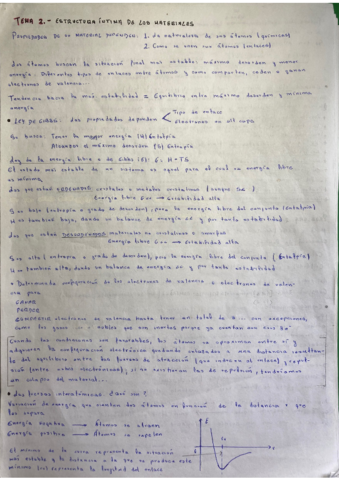 TEMA 2.- ESTRUCTURA ÍNTIMA DE LOS MATERIALES
PROPIEDADES DE UN MATERIAL DEPENDEN: 1. La naturaleza de sus átomos (químicos)
2. Como se unen sus átomos (enlaces)
Los átomos buscan la situación final mas estable: máximo desorden y menor
energía. Diferentes tipos de enlaces entre átomos y como comparten, ceden o ganan
electrones de valencia.
Tendencia hacia la más estabilidad = Equilibrio entre máximo desorden y mínima
energía.
• LEY DE GIBBS: Las propiedades dependen Tipo de enlace
Electrones en ult. capa
Se busca: Tener la menor energía (H) Entalpía
Alcanzar el máximo desorden (S) Entropía
Ley de la energía libre o de Gibbs (G): G = H-TS
El estado mas estable de un sistema es aquel para el cual su energía libre
es mínima.
Los que están ORDENADOS: cristales o metales cristalinos
Energía libre G → Estabilidad alta
S es baja (entropía o grado de desorden), pero la energía libre del conjunto (Entalpía)
H es también baja, dando un balance de energía y por tanto estabilidad.
Los que están DESORDENADOS: materiales no cristalinos o amorfos
Energía libre G → Estabilidad alta
S es alta (entropía o grado de desorden), pero la energía libre del conjunto (Entalpía)
H es también alta, dando un balance de energía y por tanto estabilidad
• Determinada configuración de los electrones de valencia o electrones de valencia
para
GANAR
PERDER
COMPARTIR electrones de valencia hasta tener un total de 8
como los gases nobles que son inertes porque ya cuentan con esos 8e⁻
Cuando dos
adquieren la configuración electrónica quedando colocados a una distancia resultante
del equilibrio entre las fuerzas de atracción (que inducen al enlace) y repulsión
(entre nubes electrónicas), si no existieran las de repulsión, tendríamos
un colapso del material.
• Las fuerzas interatómicas ¿Qué son?
Variación de energía que sienten dos átomos en función de la distancia r que
los separa
Energía negativa → Átomos se atraen
Energía positiva → Átomos se repelen
El mínimo de la curva representa la situación
más estable y la distancia a la que se produce este
mínimo (r₀) representa la longitud del enlace
E
r₀
r